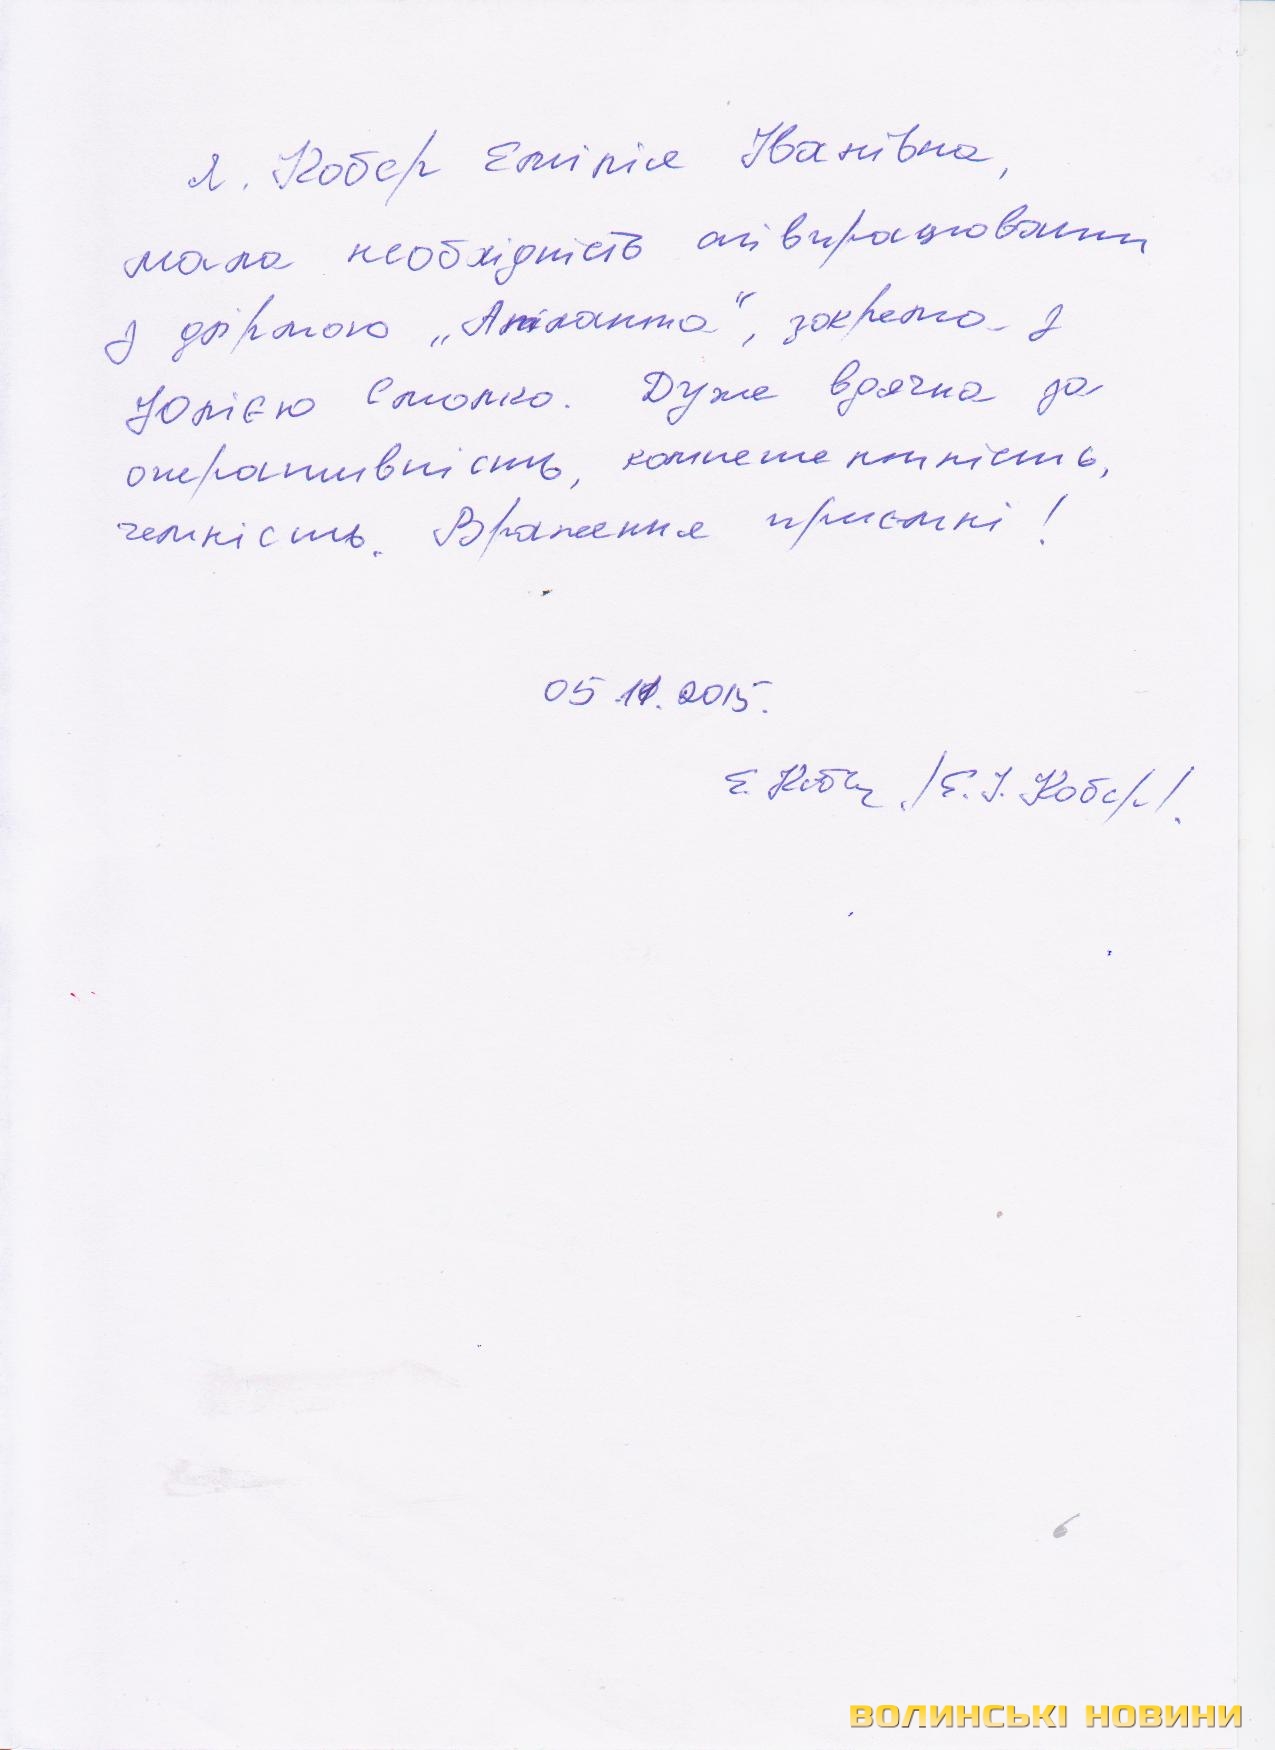 Я, Кобер Емілія Іванівна,
мала необхідність співпрацювати
з фірмою „Атланта“, зокрема з
Юлією Смолко. Дуже вдячна за
оперативність, компетентність,
чемність. Враження приємні!
05.11.2015.
Е. /Е.І. Кобер/.
6
ВОЛИНСЬКІ НОВИНИ